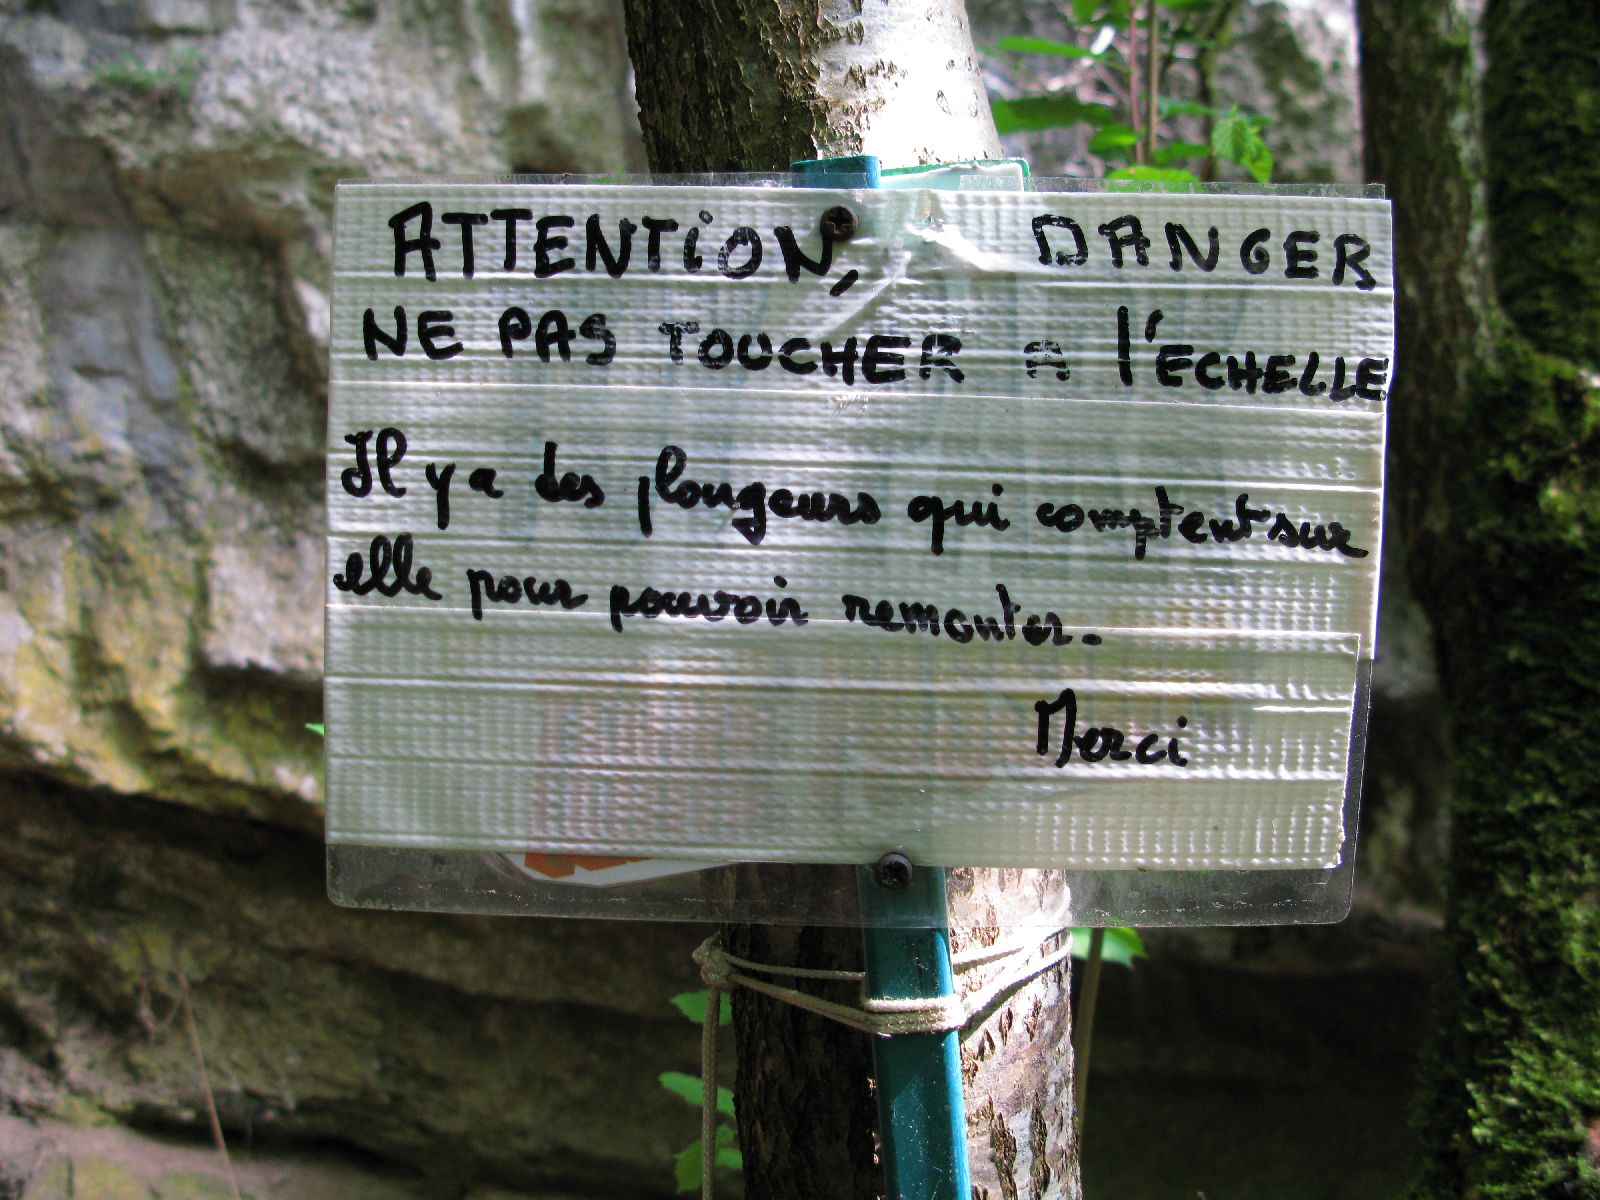 ATTENTiON, DANGER
NE PAS TOUCHER A l'ECHELLE
Il y a des plongeurs qui comptent sur
elle pour pouvoir remonter.
Merci